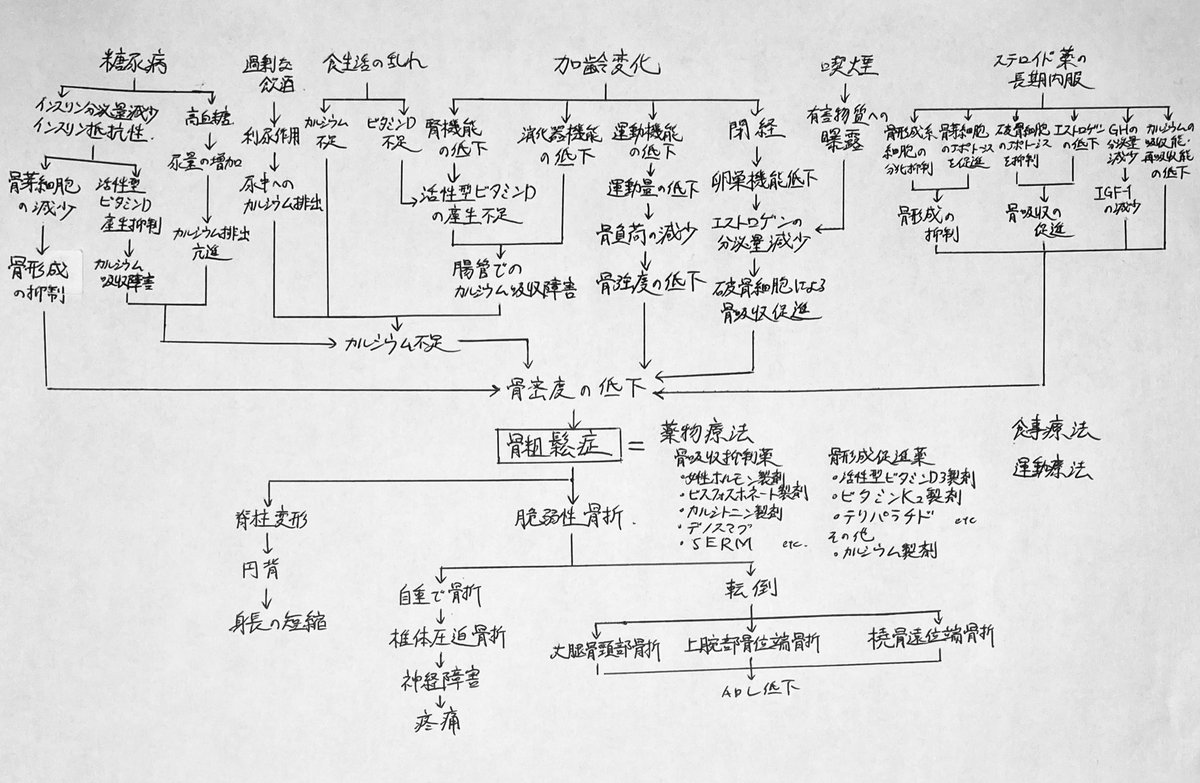 糖尿病
インスリン分泌量減少
インスリン抵抗性
高血糖
尿量の増加
カルシウム排出
亢進
骨芽細胞
の減少
骨形成
の抑制
活性型
ビタミンD
産生抑制
カルシウム
吸収障害
過剰な
飲酒
利尿作用
尿中への
カルシウム排出
食生活の乱れ
カルシウム
不足
ビタミンD
不足
加齢変化
腎機能
の低下
活性型ビタミンD
の産生不足
消化器機能
の低下
腸管での
カルシウム吸収障害
運動機能
の低下
運動量の低下
骨負荷の減少
骨強度の低下
閉経
卵巣機能低下
エストロゲンの
分泌量減少
破骨細胞による
骨吸収促進
喫煙
有害物質への
曝露
ステロイド薬の
長期内服
骨形成系
細胞の
分化抑制
骨芽細胞
のアポトーシス
を促進
骨形成の
抑制
破骨細胞
のアポトーシス
を抑制
エストロゲン
の低下
骨吸収の
促進
GHの
分泌量
減少
IGF-1
の減少
カルシウムの
吸収能・
再吸収能
の低下
カルシウム不足
骨密度の低下
骨粗鬆症
=
薬物療法
骨吸収抑制薬
・女性ホルモン製剤
・ビスフォスホネート製剤
・カルシトニン製剤
・デノスマブ
・SERM etc.
骨形成促進薬
・活性型ビタミンD3製剤
・ビタミンK2製剤
・テリパラチド etc
その他
・カルシウム製剤
食事療法
運動療法
脊柱変形
円背
身長の短縮
脆弱性骨折.
自重で骨折
椎体圧迫骨折
神経障害
疼痛
転倒
大腿骨頭部骨折
上腕部骨位端骨折
橈骨遠位端骨折
ADL低下